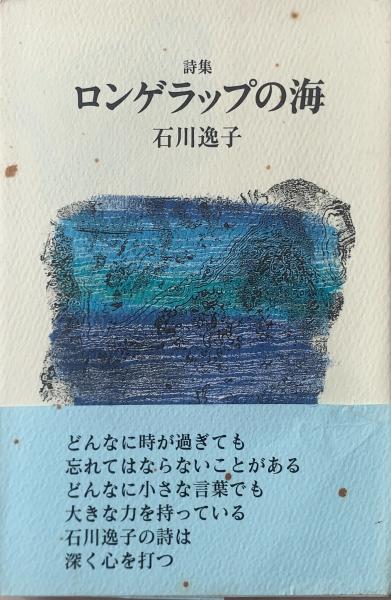 詩集
ロンゲラップの海
石川逸子
どんなに時が過ぎても
忘れてはならないことがある
どんなに小さな言葉でも
大きな力を持っている
石川逸子の詩は
深く心を打つ